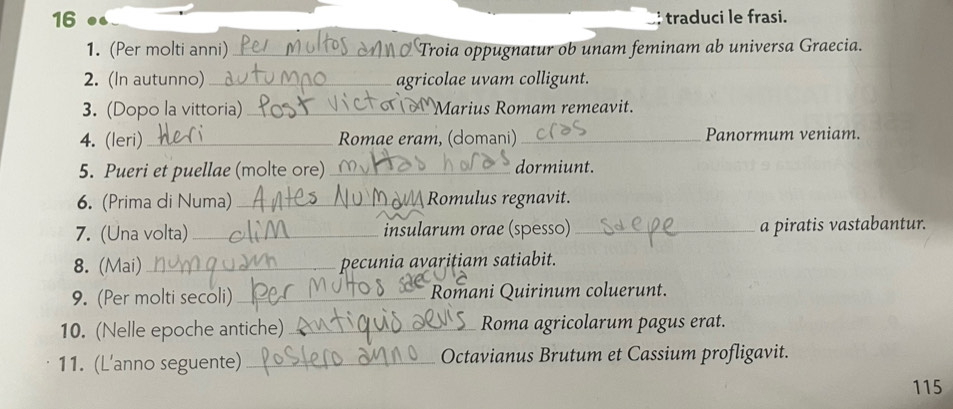 16 ●● ; traduci le frasi.
1. (Per molti anni) Per multos annos Troia oppugnatur ob unam feminam ab universa Graecia.
2. (In autunno) autumno agricolae uvam colligunt.
3. (Dopo la vittoria) Post victoriam Marius Romam remeavit.
4. (Ieri) Heri Romae eram, (domani) cras Panormum veniam.
5. Pueri et puellae (molte ore) multas horas dormiunt.
6. (Prima di Numa) Antes Numam Romulus regnavit.
7. (Una volta) olim insularum orae (spesso) saepe a piratis vastabantur.
8. (Mai) numquam pecunia avaritiam satiabit.
9. (Per molti secoli) per multos saecula Romani Quirinum coluerunt.
10. (Nelle epoche antiche) Antiquis aevis Roma agricolarum pagus erat.
11. (L'anno seguente) postero anno Octavianus Brutum et Cassium profligavit.
115